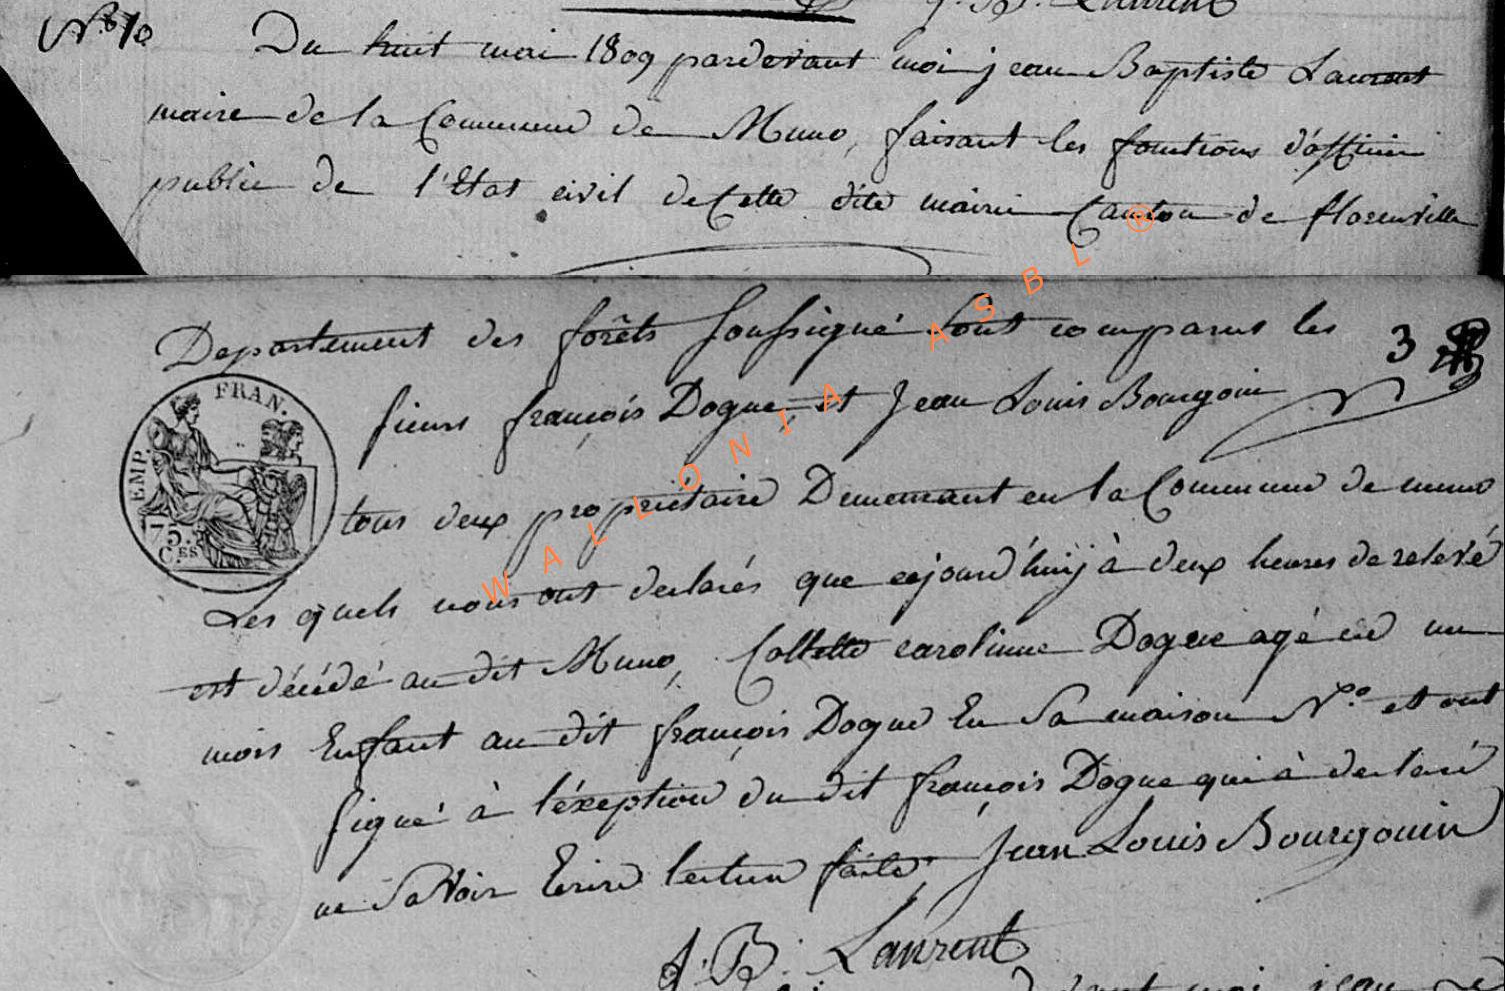 J. B. Laurent
N.° 10
Du huit mai 1809 pardevant moi jean Baptiste Laurent
maire de la Commune de Muno, faisant les fonctions d'officier
public de l'Etat civil de Cette dite mairie Canton de florenville
Departement des forêts Soussigné Sont comparus les
3
sieurs françois Dogue, et Jean Louis Bourgoin
tous deux propriétaire Demeurant en la Commune de muno
Les quels nous ont declarés que cejourd'huij à deux heures de relevé
est décédé au dit Muno, Collette carolinne Dogue agé'e d un
mois Enfant au dit françois Dogue En Sa maison N.° et ont
signé à l'éxeption du dit françois Dogue qui à declaré
ne Savoir Ecrire lecture faite. Jean Louis Bourgouin
J. B. Laurent
moi jean
EMP. FRAN.
75.
C.ES
WALLONIA ASBL ®